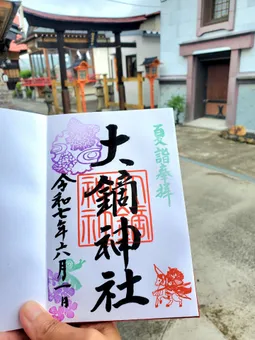 夏詣奉拝
大鏑神社
令和七年六月一日